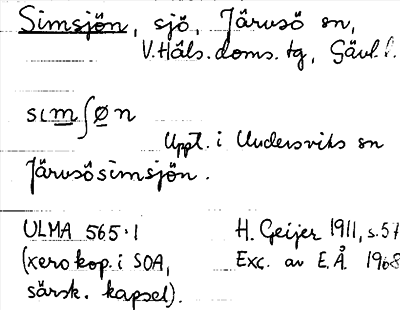 Simsjön, sjö, Järvsö sn,
V. Häls. doms. tg, Gävl. l.
sɩm∫ø n
Uppt. i Undersviks sn
Järvsösimsjön.
ULMA 565:1
(xerokop. i SOA,
särsk. kapsel).
H. Geijer 1911, s. 57
Exc. av E. Å. 1968